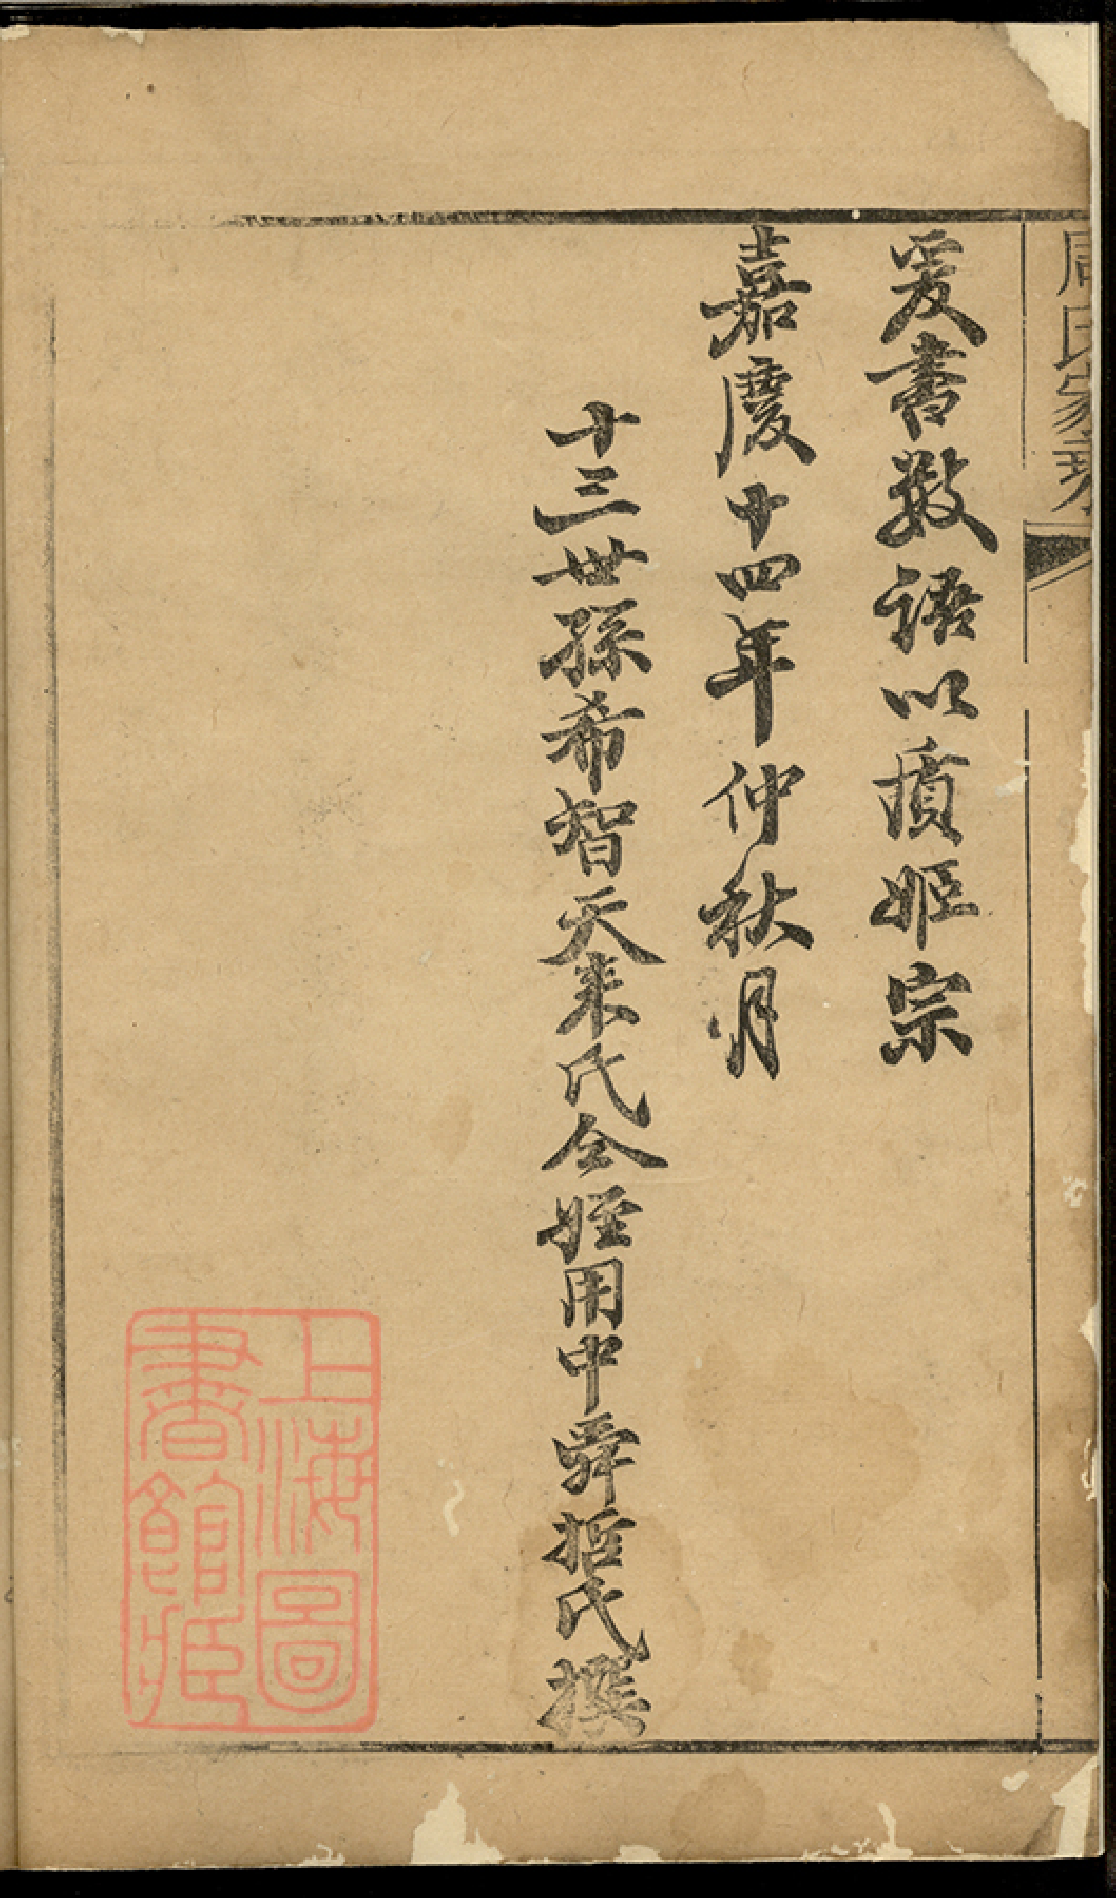 周氏家乘
爰書数語以質姬宗
嘉慶十四年仲秋月
十三世孫希智天来氏仝姪用中舜哲氏撰
上海圖書館藏